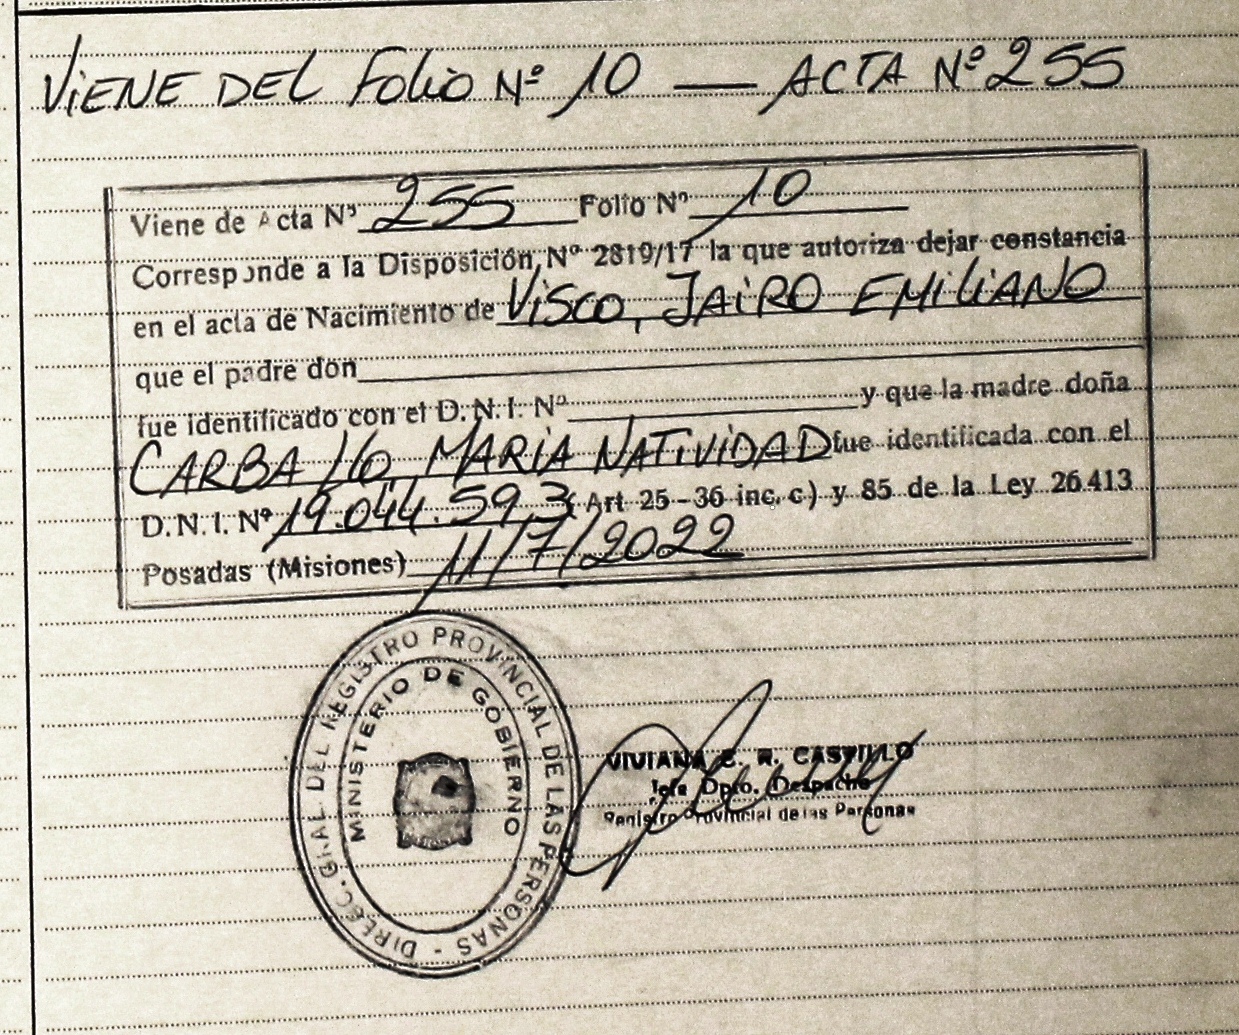 VIENE DEL FOLIO Nº 10 — ACTA Nº 255
Viene de Acta Nº 255 Folio Nº 10
Corresponde a la Disposición, Nº 2819/17 la que autoriza dejar constancia
en el acta de Nacimiento de VISCO, JAIRO EMILIANO
que el padre don
fue identificado con el D.N.I. Nº y que la madre doña
CARBALLO, MARIA NATIVIDAD fue identificada con el
D.N.I. Nº 19.044.593 (Art 25-36 inc. c) y 85 de la Ley 26.413
Posadas (Misiones) 11/7/2022
DIREC. GRAL DEL REGISTRO PROVINCIAL DE LAS PERSONAS -
MINISTERIO DE GOBIERNO
VIVIANA C. R. CASTILLO
Jefa Dpto. Despacho
Registro Provincial de las Personas